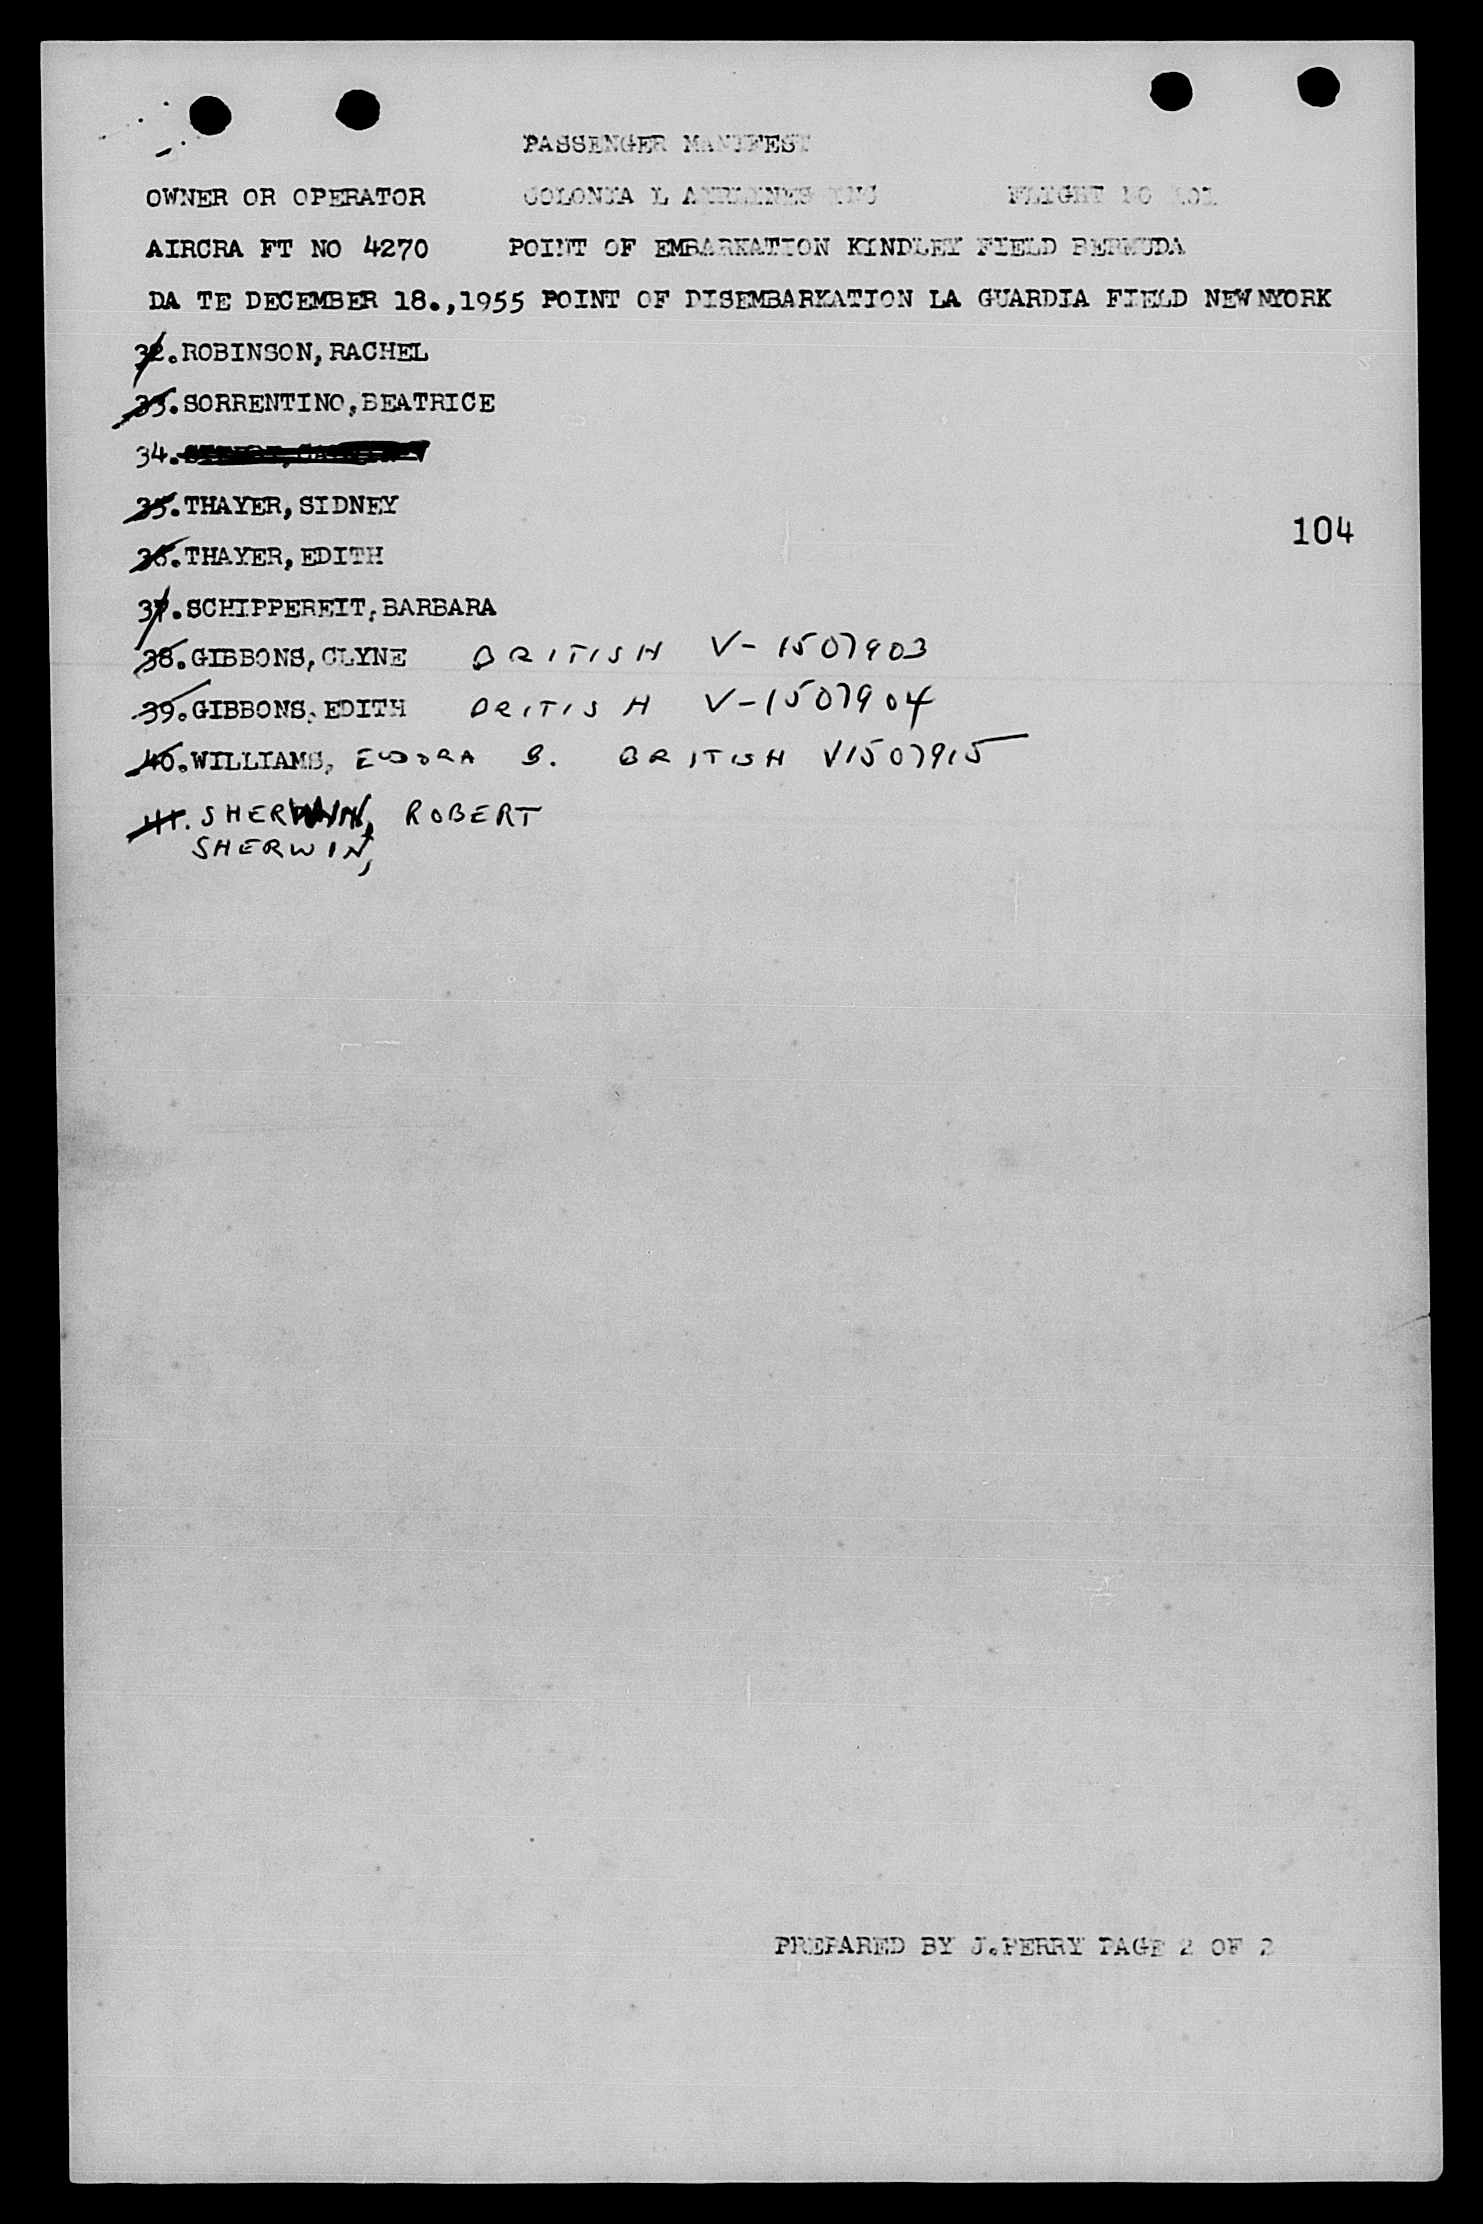 PASSENGER MANIFEST
OWNER OR OPERATOR COLONIA L AIRLINES INC FLIGHT NO 101
AIRCRA FT NO 4270 POINT OF EMBARKATION KINDLEY FIELD BERMUDA
DA TE DECEMBER 18.,1955 POINT OF DISEMBARKATION LA GUARDIA FIELD NEW NYORK
32.ROBINSON,RACHEL
33.SORRENTINO,BEATRICE
34.
35.THAYER,SIDNEY
104
36.THAYER,EDITH
37.SCHIPPEREIT,BARBARA
38.GIBBONS,CLYNE BRITISH V-1507903
39.GIBBONS,EDITH BRITISH V-1507904
40.WILLIAMS, EUDORA B. BRITISH V1507915
41. SHERWIN, ROBERT
SHERWIN,
PREPARED BY J.PERRY PAGE 2 OF 2